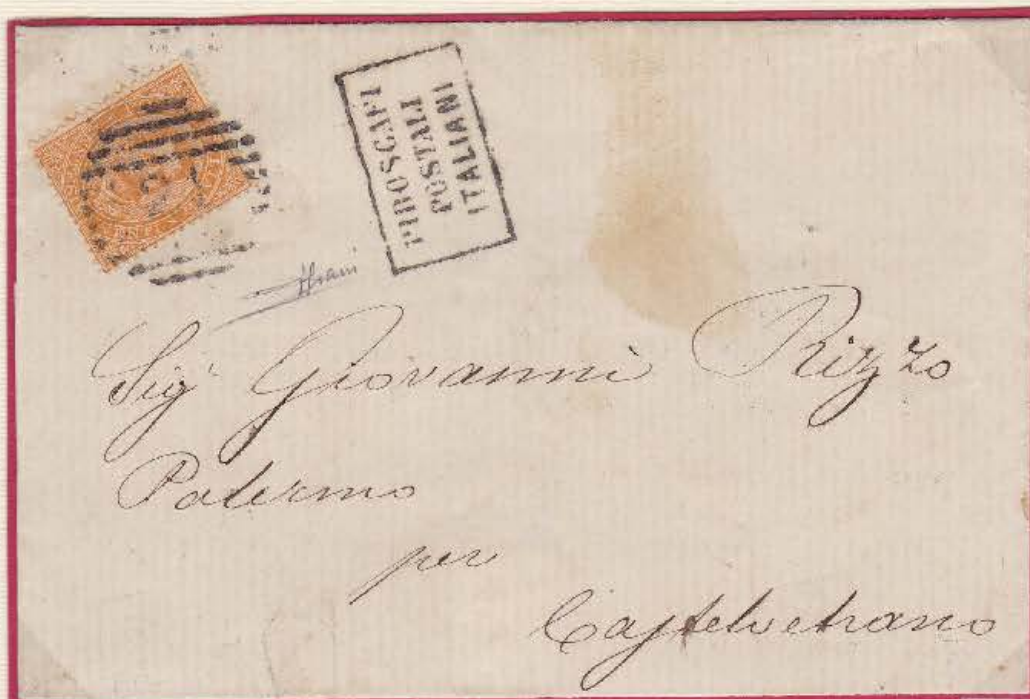 PIROSCAFI
POSTALI
ITALIANI
Sigr Giovanni Rizzo
Palermo
per
Castelvetrano